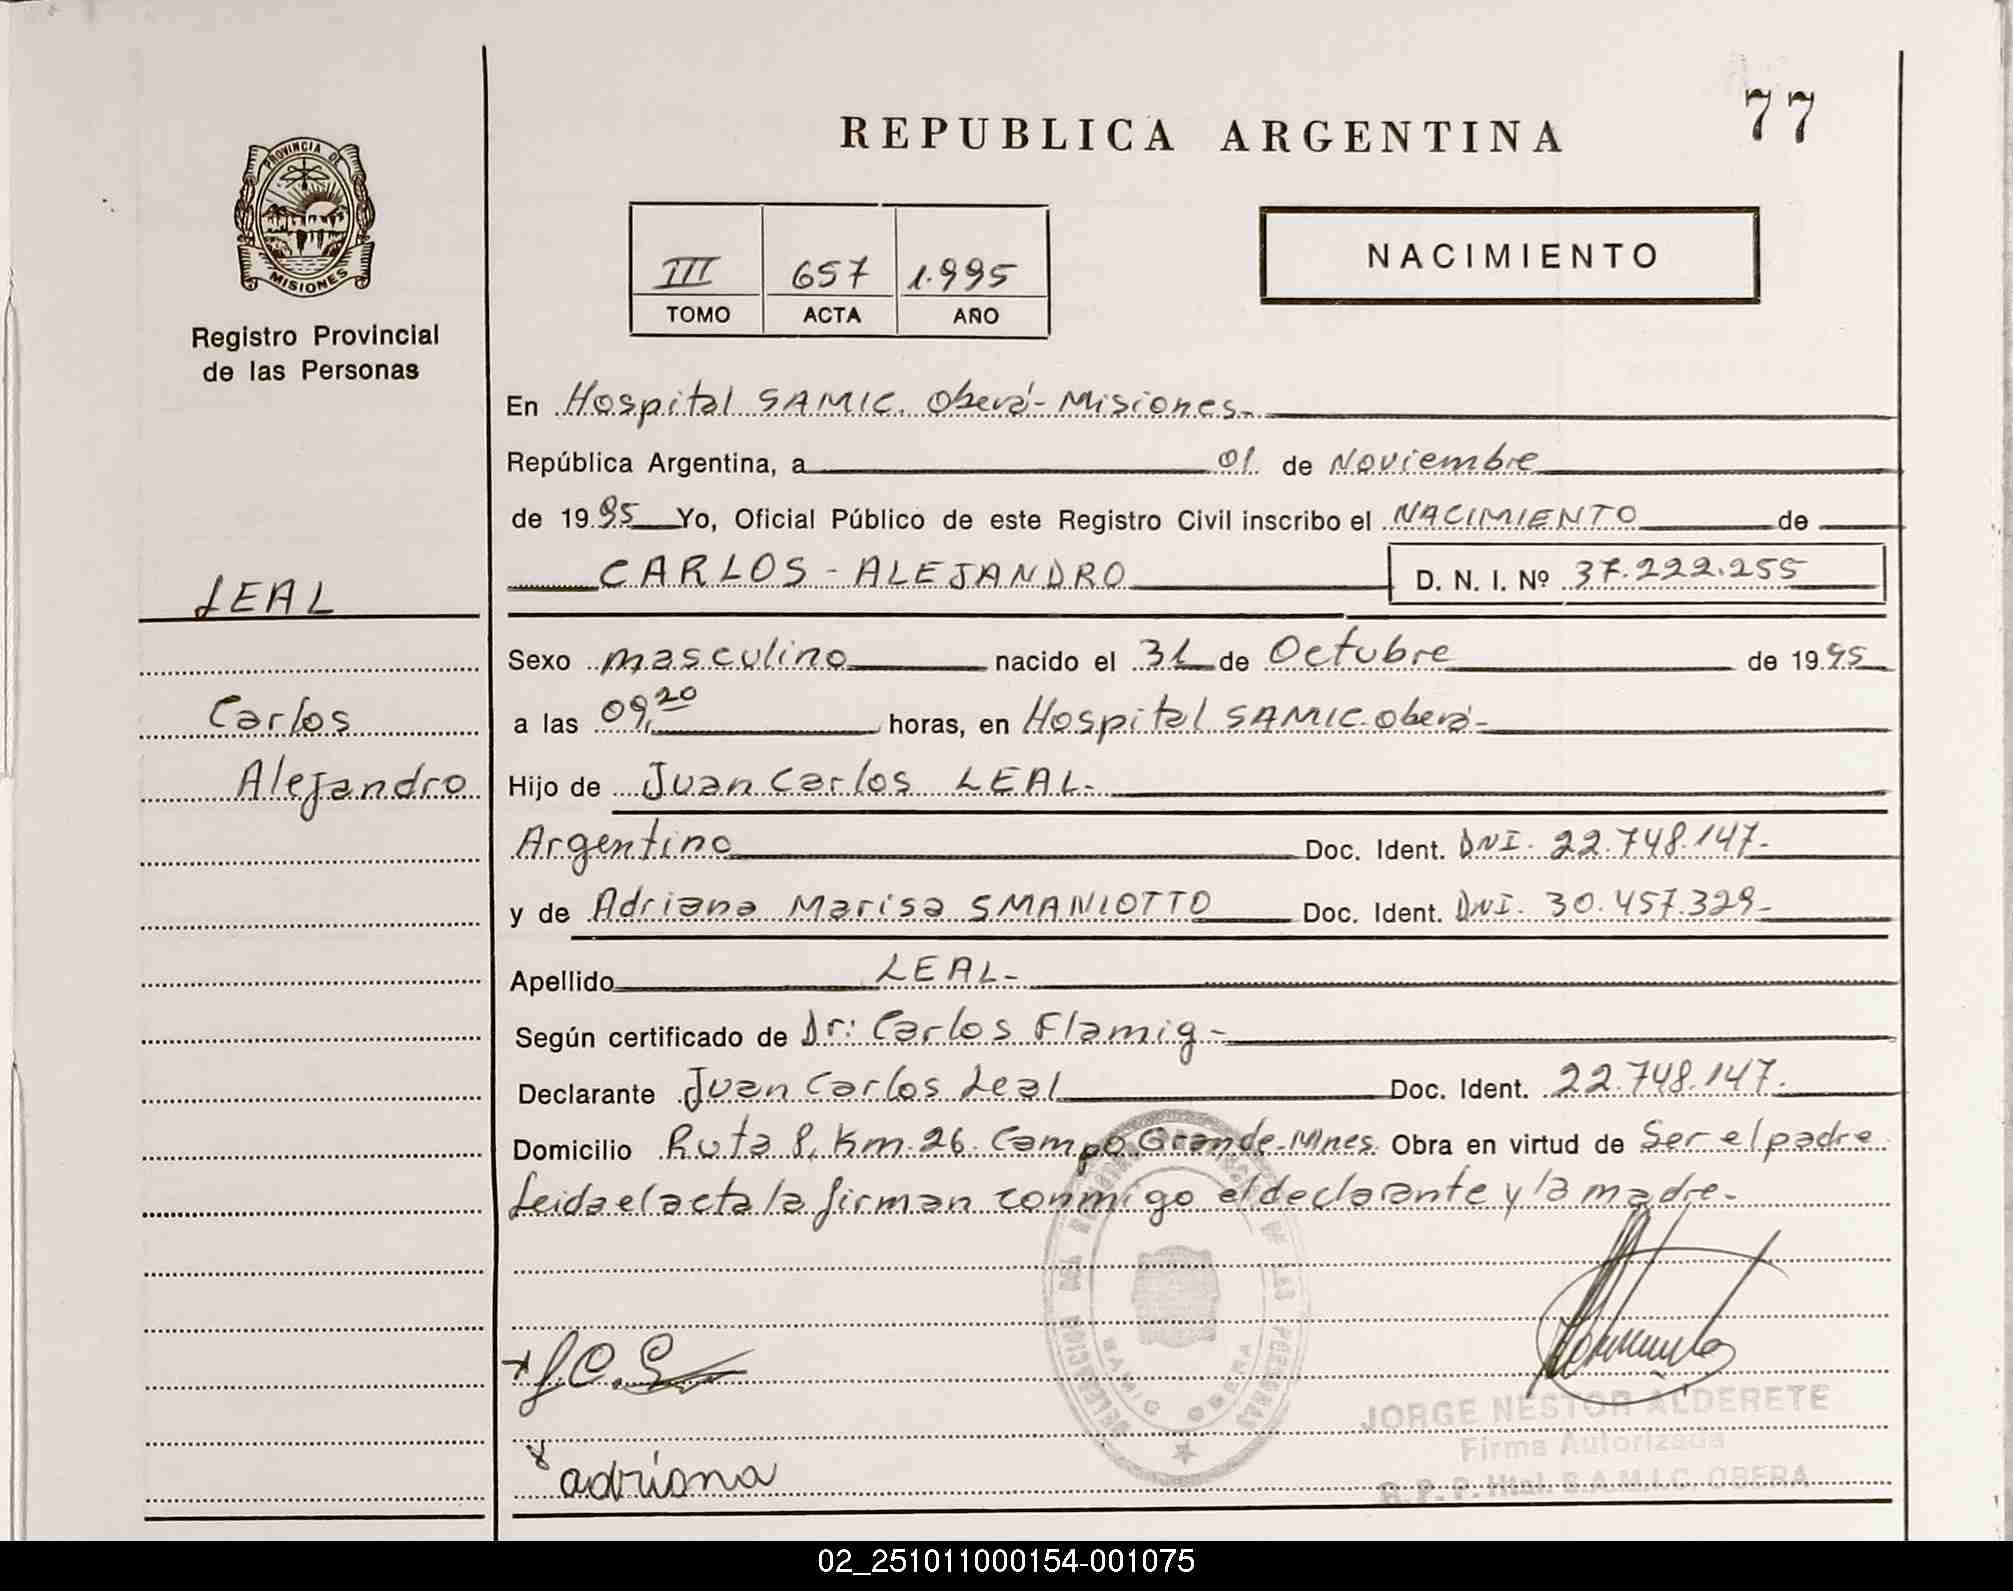 77
REPUBLICA ARGENTINA
PROVINCIA DE
MISIONES
Registro Provincial
de las Personas
III 657 1.995
TOMO ACTA AÑO
NACIMIENTO
En Hospital SAMIC. Oberá - Misiones.
República Argentina, a 01 de Noviembre
de 1995 Yo, Oficial Público de este Registro Civil inscribo el NACIMIENTO de
CARLOS - ALEJANDRO D. N. I. Nº 37.222.255
LEAL
Carlos
Alejandro
Sexo masculino nacido el 31 de Octubre de 1995
a las 09,20 horas, en Hospital SAMIC. Oberá -
Hijo de Juan Carlos LEAL -
Argentino Doc. Ident. DNI. 22.748.147.-
y de Adriana Marisa SMANIOTTO Doc. Ident. DNI. 30.457.329-
Apellido LEAL -
Según certificado de Dr: Carlos Flamig -
Declarante Juan Carlos Leal Doc. Ident. 22.748.147.
Domicilio Ruta 8, Km. 26. Campo Grande - Mnes. Obra en virtud de Ser el padre
Leida el acta la firman conmigo el declarante y la madre -
DELEGACION
SAMIC OBERA
adriana
JORGE NESTOR ALDERETE
Firma Autorizada
R. P. P. Htal. S.A.M.I.C. OBERA
02_251011000154-001075